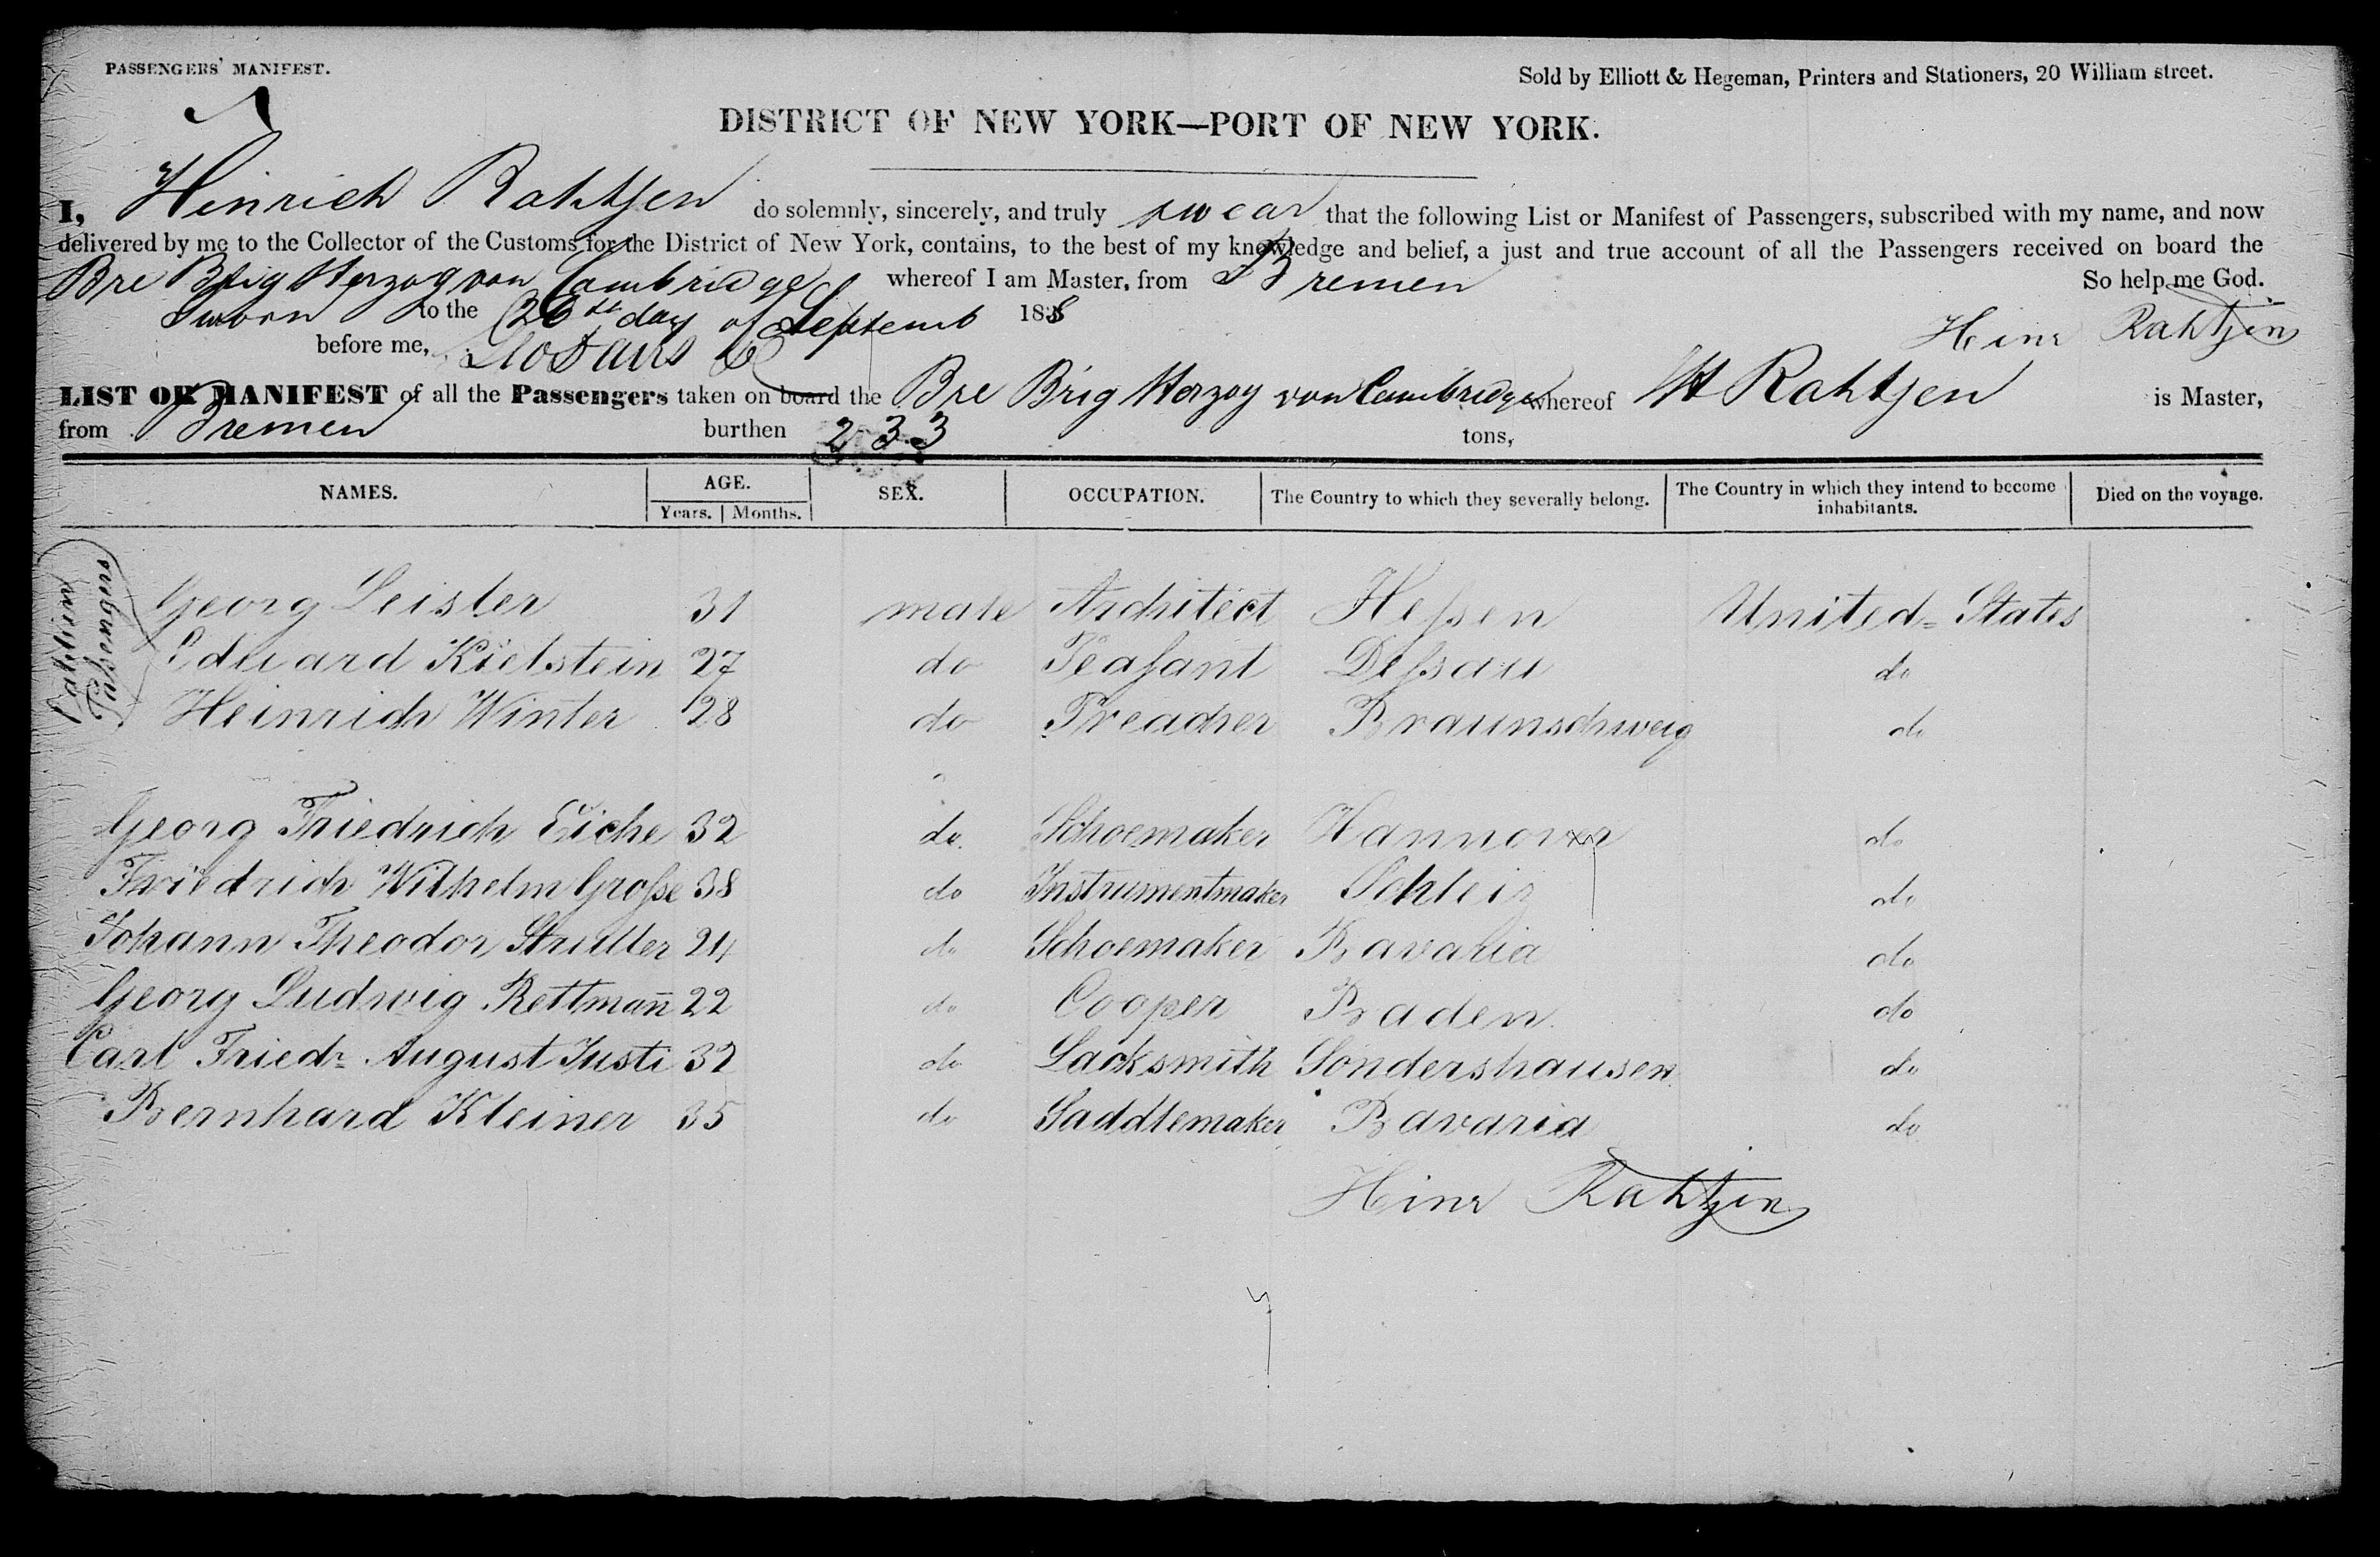 PASSENGERS' MANIFEST.
Sold by Elliott & Hegeman, Printers and Stationers, 20 William street.
DISTRICT OF NEW YORK—PORT OF NEW YORK.
I, Hinrich Rahtjen do solemnly, sincerely, and truly swear that the following List or Manifest of Passengers, subscribed with my name, and now
delivered by me to the Collector of the Customs for the District of New York, contains, to the best of my knowledge and belief, a just and true account of all the Passengers received on board the
Bre Brig Herzog von Cambridge whereof I am Master, from Bremen So help me God.
Sworn to the 26th day of Septemb 1838
Heinr Rahtjen
before me,
LIST OR MANIFEST of all the Passengers taken on board the Bre Brig Herzog von Cambridge whereof H Rahtjen is Master,
from Bremen burthen 233 tons,
NAMES. AGE. Years. Months. SEX. OCCUPATION. The Country to which they severally belong. The Country in which they intend to become inhabitants. Died on the voyage.
Cabbin Paſsengers
Georg Leisler 31 male Architect Heſsen United-States
Eduard Kielstein 27 do Peaſant Deſsau do
Heinrich Winter 28 do Preacher Braunschweig do
Georg Friedrich Eiche 32 do. Schoemaker Hannover do
Friedrich Wilhelm Groſse 38 do Instrumentmaker Schleiz do
Johann Theodor Struller 24 do Schoemaker Bavaria do
Georg Ludwig Rettman̄ 22 do Cooper Baden do
Carl Friedr. August Justi 32 do Lacksmith Sondershausen do
Bernhard Kleiner 35 do Saddlemaker Bavaria do
Hinr Rahtjen